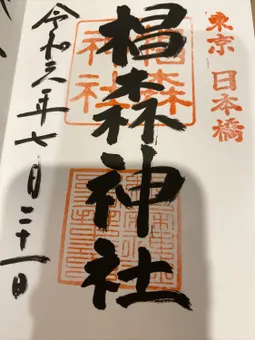 東京 日本橋
椙森神社
椙森
神社
令和六年七月二十一日